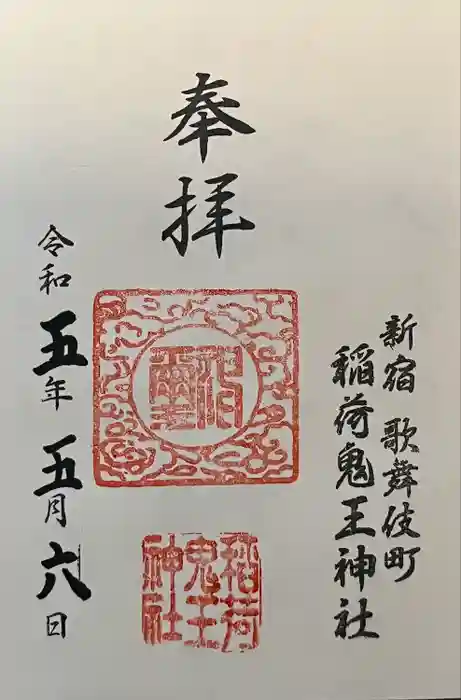 新宿 歌舞伎町
稲荷鬼王神社
奉拝
稲荷
鬼王
神社
令和五年五月六日